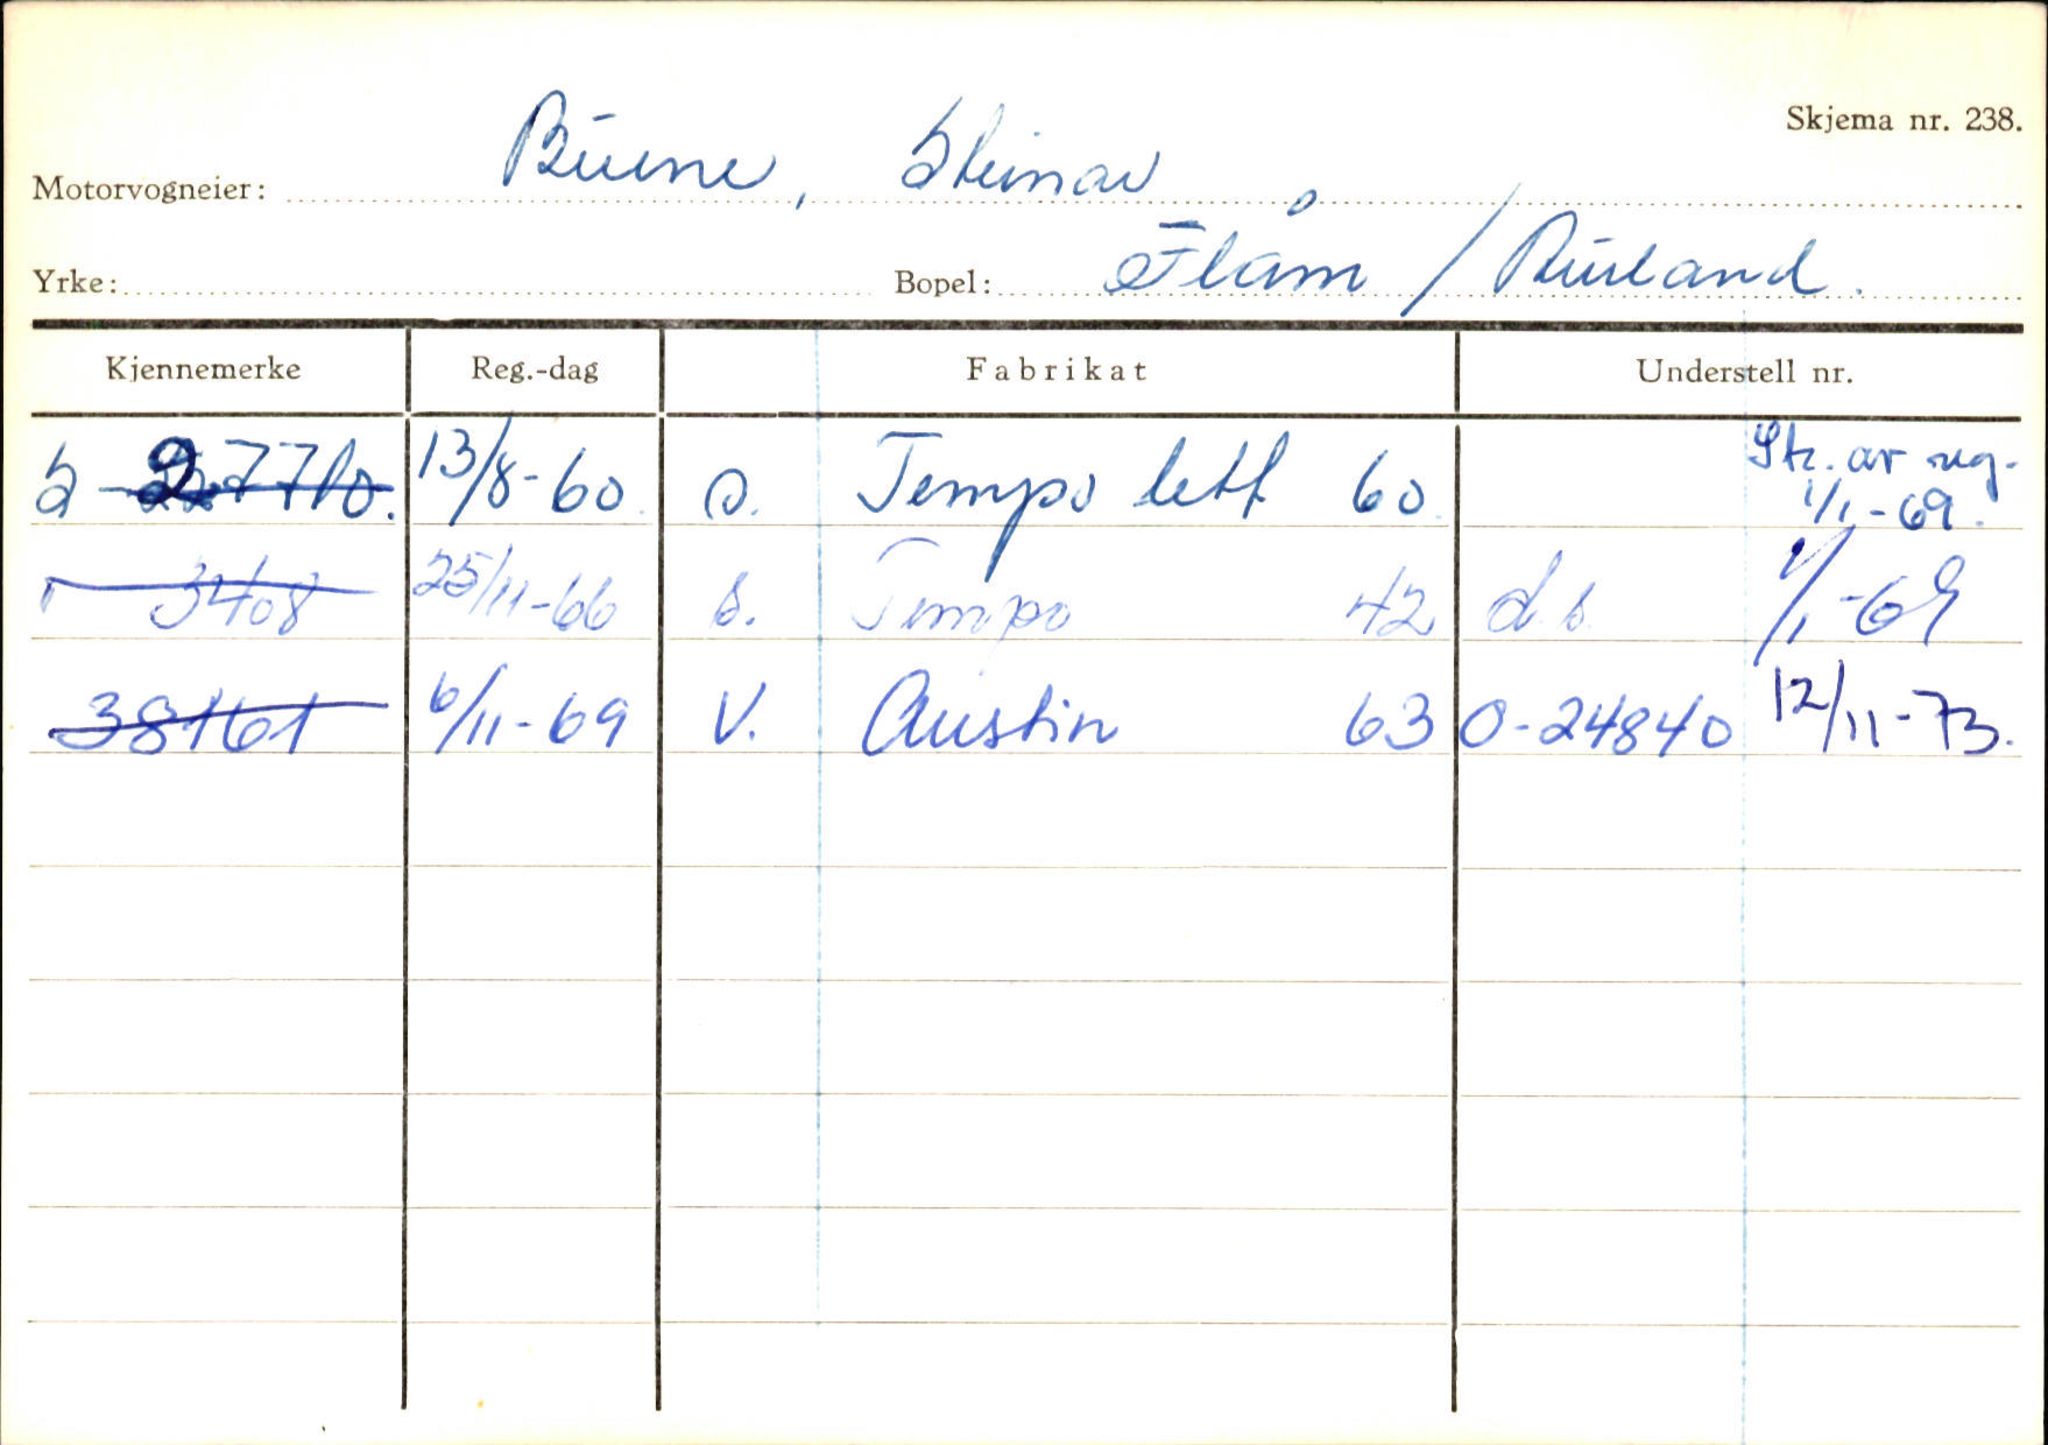 Skjema nr. 238.
Motorvogneier: Buene, Steinar
Yrke: Bopel: Flåm / Aurland.
Kjennemerke Reg.-dag Fabrikat Understell nr.
S- 27710. 13/8-60 s. Tempo lett 60 Str. av reg. 1/1-69.
" 3408 25/11-66 s. Tempo 42 d.s. 1/1-69
38161 6/11-69 V. Austin 63 0-24840 12/11-73.